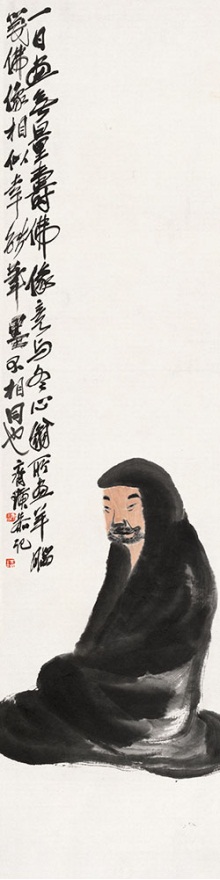 一日畫無量壽佛像竟与冬心翁所畫羊腦
箋佛像相似幸能筆墨不相同也
齊璜并記